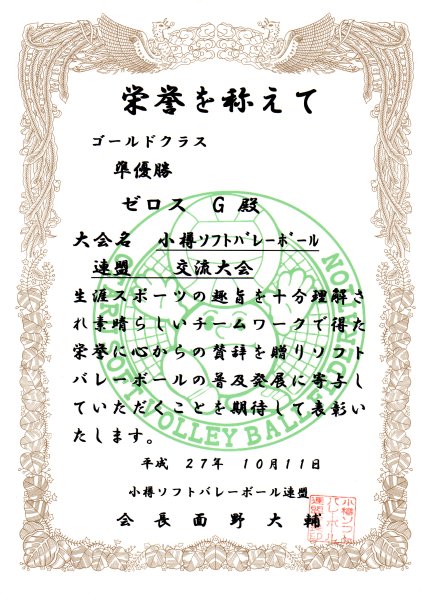 栄誉を称えて
ゴールドクラス
準優勝
ゼロス G 殿
大会名 小樽ソフトバレーボール
連盟 交流大会
生涯スポーツの趣旨を十分理解さ
れ素晴らしいチームワークで得た
栄誉に心からの賛辞を贈りソフト
バレーボールの普及発展に寄与し
ていただくことを期待して表彰い
たします。
平成 27年 10月11日
小樽ソフトバレーボール連盟
会長 面野大輔
小樽ソフト
バレーボール
連盟印
SOFT VOLLEY BALL FEDERATION